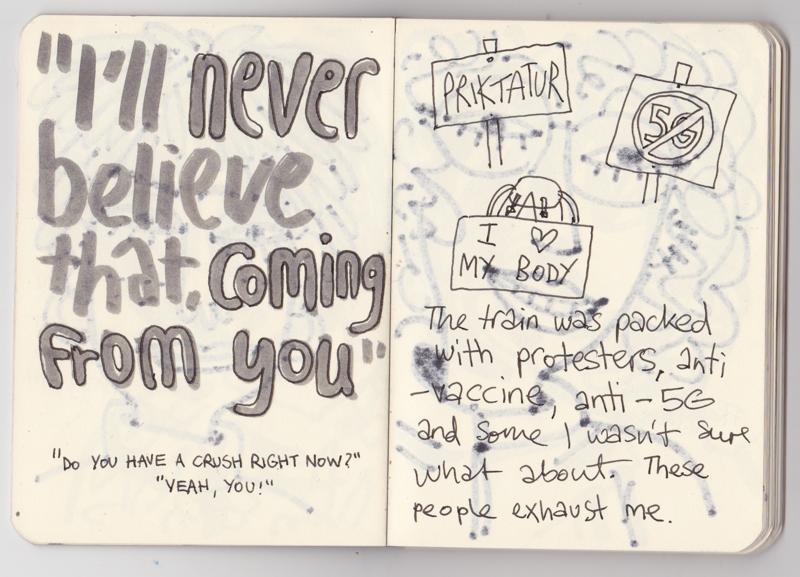 "I'll never
believe
that, Coming
From you"
"DO YOU HAVE A CRUSH RIGHT NOW?"
"YEAH, YOU!"
PRIKTATUR
5G
I ♡
MY BODY
The train was packed
with protesters, anti
-vaccine, anti-5G
and some I wasn't sure
what about. These
people exhaust me.